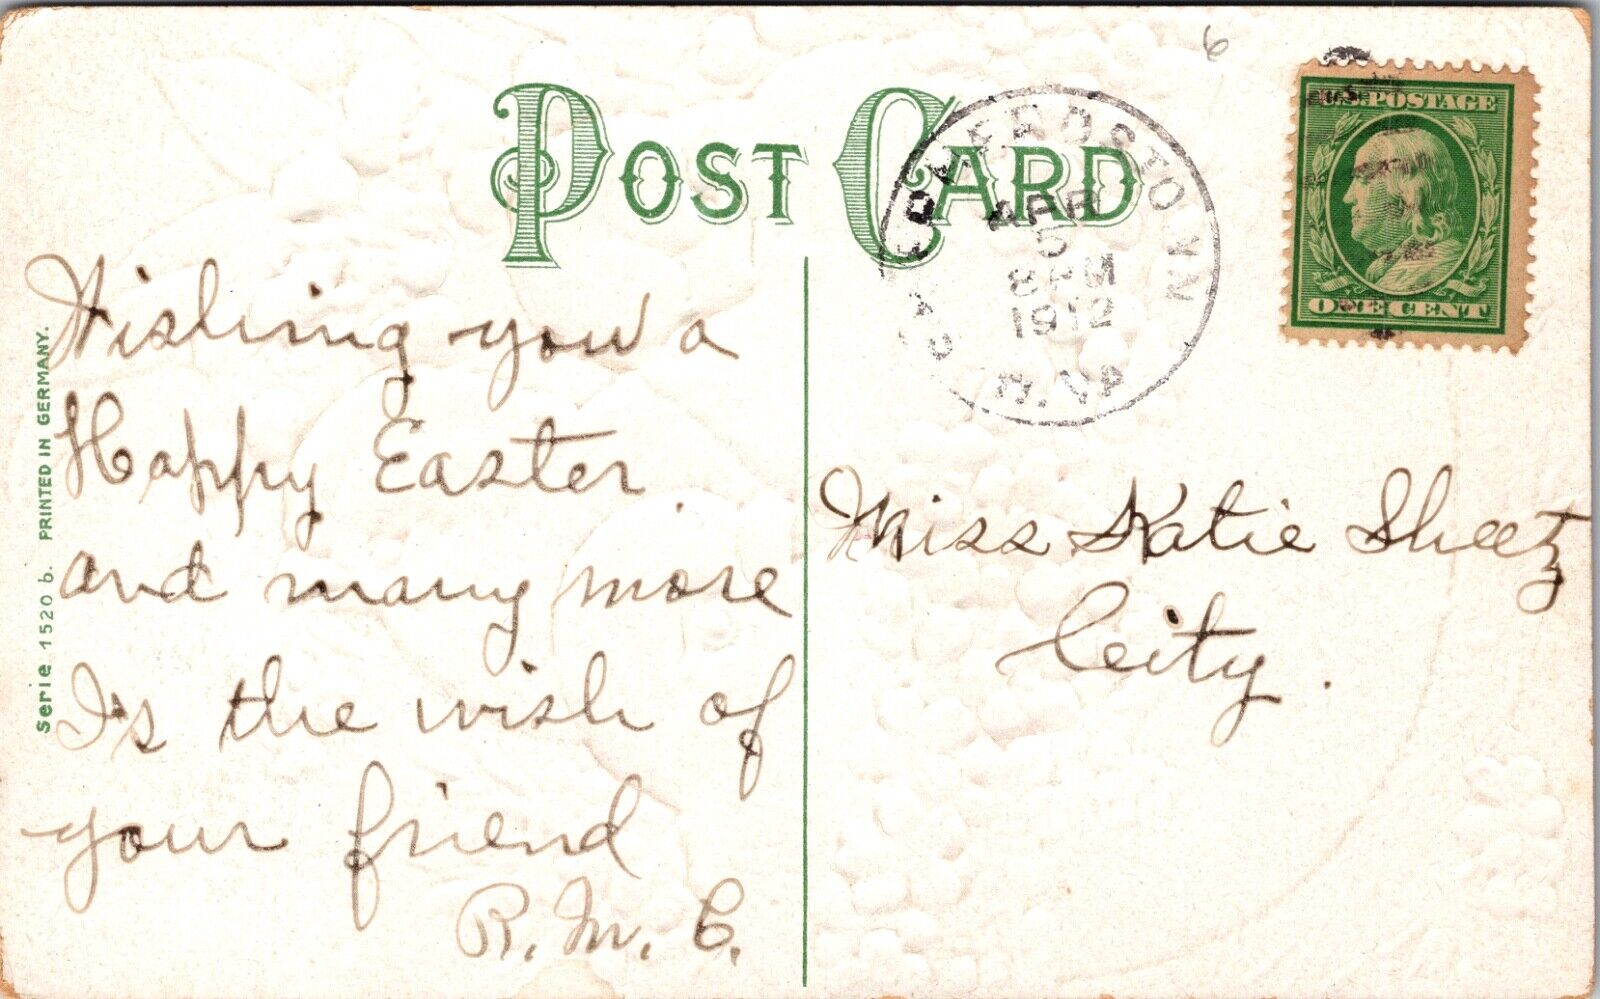 6
POST CARD
U.S. POSTAGE
ONE CENT
SHEPHERDSTOWN
APR
5
8 PM
1912
W. VA
Wishing you a
Happy Easter
and many more
Is the wish of
your friend
R. M. C.
Miss Katie Sheetz
City.
Serie 1520 b. PRINTED IN GERMANY.